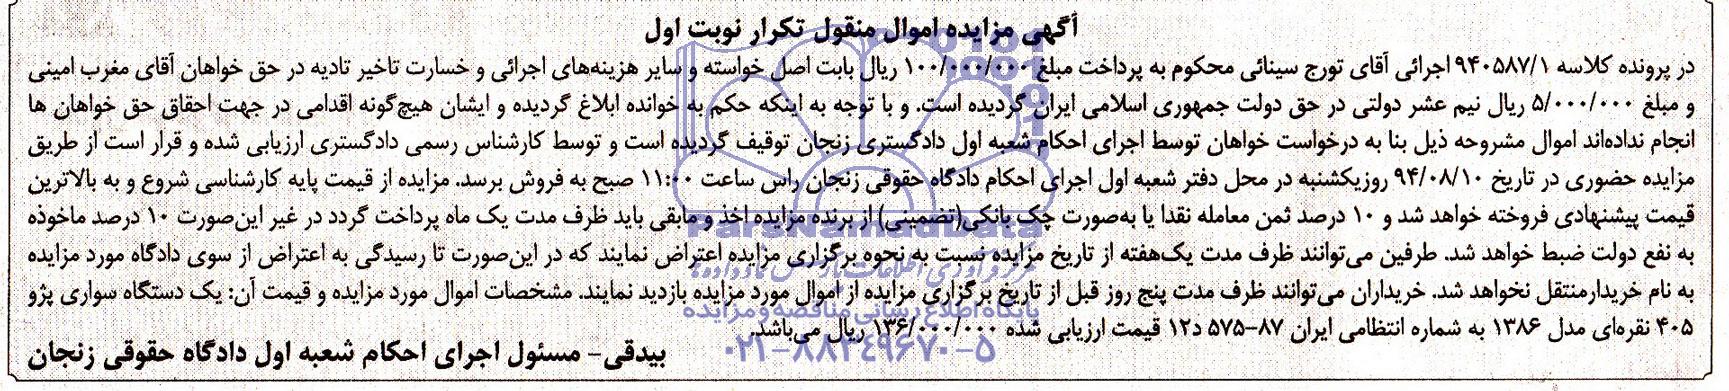 آگهی مزایده اموال منقول تکرار نوبت اول
در پرونده کلاسه ۹۴۰۵۸۷/۱ اجرائی آقای تورج سینائی محکوم به پرداخت مبلغ ۱۰۰/۰۰۰/۰۰۰ ریال بابت اصل خواسته و سایر هزینه‌های اجرائی و خسارت تاخیر تادیه در حق خواهان آقای مغرب امینی
و مبلغ ۵/۰۰۰/۰۰۰ ریال نیم عشر دولتی در حق دولت جمهوری اسلامی ایران گردیده است. و با توجه به اینکه حکم به خوانده ابلاغ گردیده و ایشان هیچ‌گونه اقدامی در جهت احقاق حق خواهان ها
انجام نداده‌اند اموال مشروحه ذیل بنا به درخواست خواهان توسط اجرای احکام شعبه اول دادگستری زنجان توقیف گردیده است و توسط کارشناس رسمی دادگستری ارزیابی شده و قرار است از طریق
مزایده حضوری در تاریخ ۹۴/۰۸/۱۰ روزیکشنبه در محل دفتر شعبه اول اجرای احکام دادگاه حقوقی زنجان راس ساعت ۱۱:۰۰ صبح به فروش برسد. مزایده از قیمت پایه کارشناسی شروع و به بالاترین
قیمت پیشنهادی فروخته خواهد شد و ۱۰ درصد ثمن معامله نقدا یا به‌صورت چک بانکی(تضمینی) از برنده مزایده اخذ و مابقی باید ظرف مدت یک ماه پرداخت گردد در غیر این‌صورت ۱۰ درصد ماخوذه
به نفع دولت ضبط خواهد شد. طرفین می‌توانند ظرف مدت یک‌هفته از تاریخ مزایده نسبت به نحوه برگزاری مزایده اعتراض نمایند که در این‌صورت تا رسیدگی به اعتراض از سوی دادگاه مورد مزایده
به نام خریدارمنتقل نخواهد شد. خریداران می‌توانند ظرف مدت پنج روز قبل از تاریخ برگزاری مزایده از اموال مورد مزایده بازدید نمایند. مشخصات اموال مورد مزایده و قیمت آن: یک دستگاه سواری پژو
۴۰۵ نقره‌ای مدل ۱۳۸۶ به شماره انتظامی ایران ۸۷-۵۷۵ د۱۲ قیمت ارزیابی شده ۱۳۶/۰۰۰/۰۰۰ ریال می‌باشد.
بیدقی- مسئول اجرای احکام شعبه اول دادگاه حقوقی زنجان
ParsNamadData
پایگاه اطلاع رسانی مناقصه و مزایده
۰۲۱-۸۸۳۴۹۶۷۰-۵